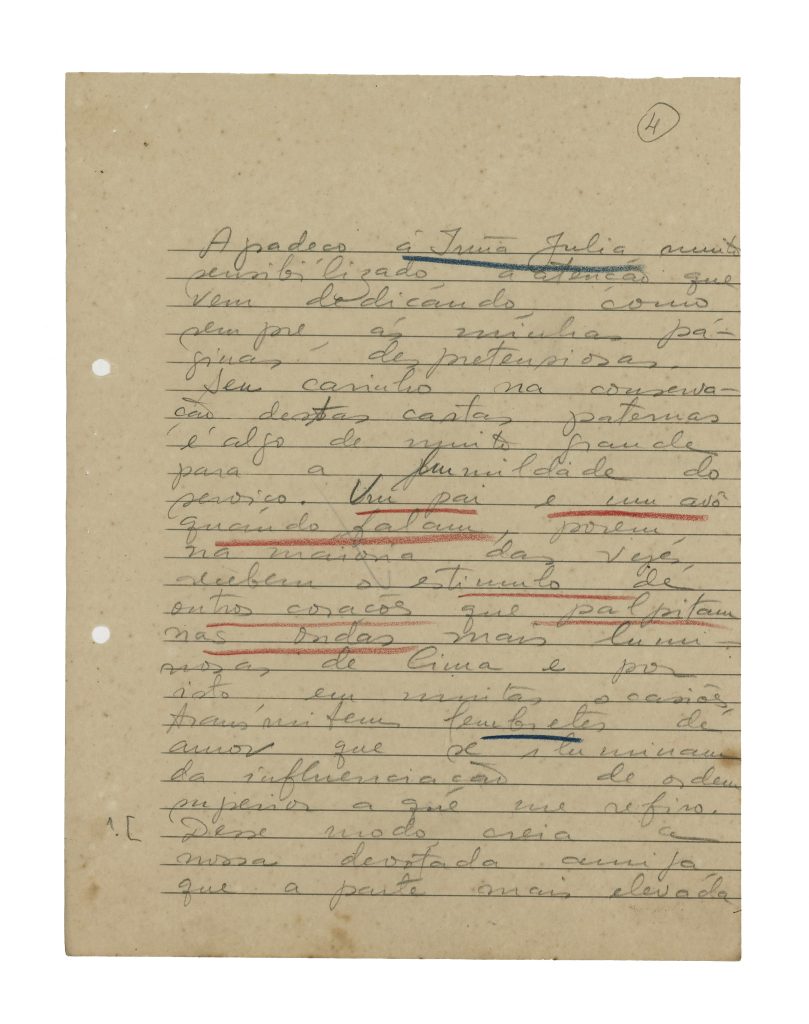 4
Agradeço á Irmã Julia muito
sensibilizado a atenção que
vem dedicando, como
sempre ás minhas pá-
ginas despretensiosas.
Seu carinho na conserva-
ção destas cartas paternas
é algo de muito grande
para a humildade do
serviço. Um pai e um avô
quando falam, porem
na maioria das vezes
recebem o estimulo de
outros corações que palpitam
nas ondas mais lumi-
nosas de Cima e por
isto em muitas ocasiões,
transmitem lembretes de
amor que se iluminam
da influenciação de ordem
superior a que me refiro.
1.[ Desse modo, creia a
nossa devotada amiga
que a parte mais elevada,